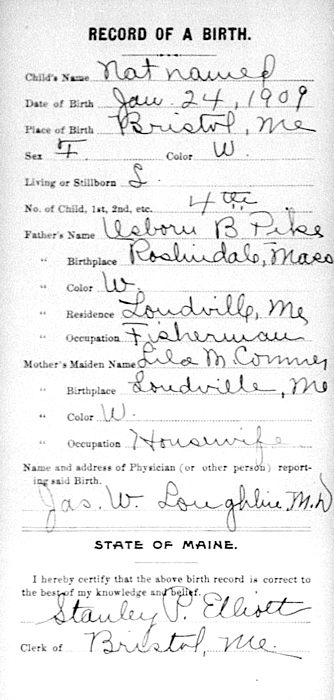 RECORD OF A BIRTH.
Child's Name Not named
Date of Birth Jan. 24, 1909
Place of Birth Bristol, Me
Sex F. Color W.
Living or Stillborn L
No. of Child, 1st, 2nd, etc. 4th
Father's Name Usborn B Pike
" Birthplace Roslindale, Mass
" Color W.
" Residence Loudville, Me
" Occupation Fisherman
Mother's Maiden Name Lila M
" Birthplace Loudville, Me
" Color W.
" Occupation Housewife
Name and address of Physician (or other person) report-
ing said Birth.
Jas. W. Loughlin M.D
STATE OF MAINE.
I hereby certify that the above birth record is correct to
the best of my knowledge and belief.
Stanley P. Elliott
Clerk of Bristol, Me.